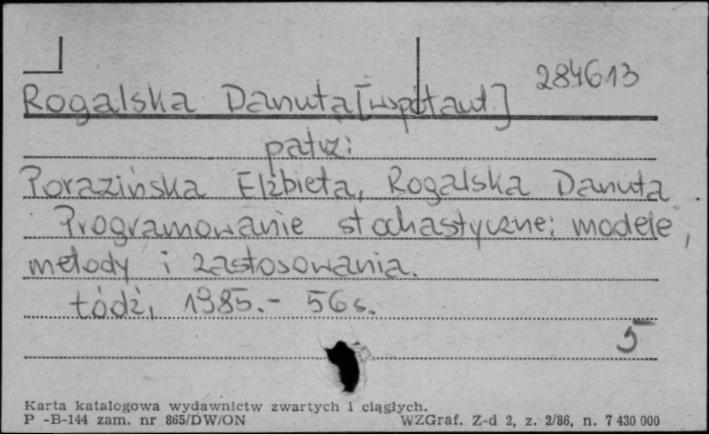 284613
Rogalska Danuta [współaut]
patrz:
Porazińska Elżbieta, Rogalska Danuta
Programowanie stochastyczne: modele,
metody i zastosowania.
Łódź, 1985.- 56 s.
5
Karta katalogowa wydawnictw zwartych i ciągłych.
P -B-144 zam. nr 865/DW/ON WZGraf. Z-d 2, z. 2/86, n. 7 430 000